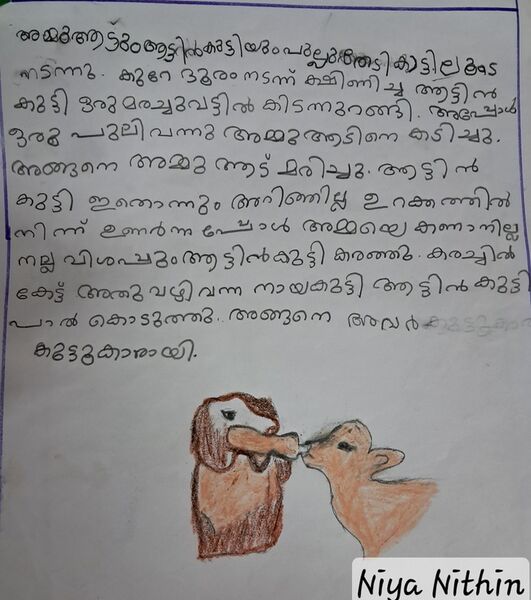 അമ്മുആട്ടും ആട്ടിൻകുട്ടിയും പുല്ലുതേടി കാട്ടിലൂടെ
നടന്നു. കുറേ ദൂരം നടന്ന് ക്ഷീണിച്ച ആട്ടിൻ
കുട്ടി ഒരു മരച്ചുവട്ടിൽ കിടന്നുറങ്ങി. അപ്പോൾ
ഒരു പുലി വന്നു അമ്മു ആടിനെ കടിച്ചു.
അങ്ങനെ അമ്മു ആട് മരിച്ചു. ആട്ടിൻ
കുട്ടി ഇതൊന്നും അറിഞ്ഞില്ല ഉറക്കത്തിൽ
നിന്ന് ഉണർന്നപ്പോൾ അമ്മയെ കണാനില്ല
നല്ല വിശപ്പും ആട്ടിൻകുട്ടി കരഞ്ഞു. കരച്ചിൽ
കേട്ട് അതുവഴി വന്ന നായകുട്ടി ആട്ടിൻകുട്ടി
പാൽ കൊടുത്തു. അങ്ങനെ അവർ
കൂട്ടുകാരായി.
Niya Nithin